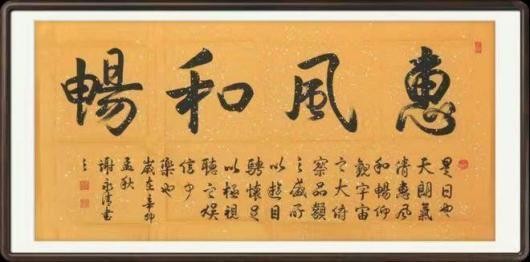 惠風和暢
是日也
天朗氣
清惠風
和暢仰
觀宇宙
之大俯
察品類
之盛所
以遊目
騁懷足
以極視
聽之娛
信可
樂也
歲在辛卯
孟秋
謝永